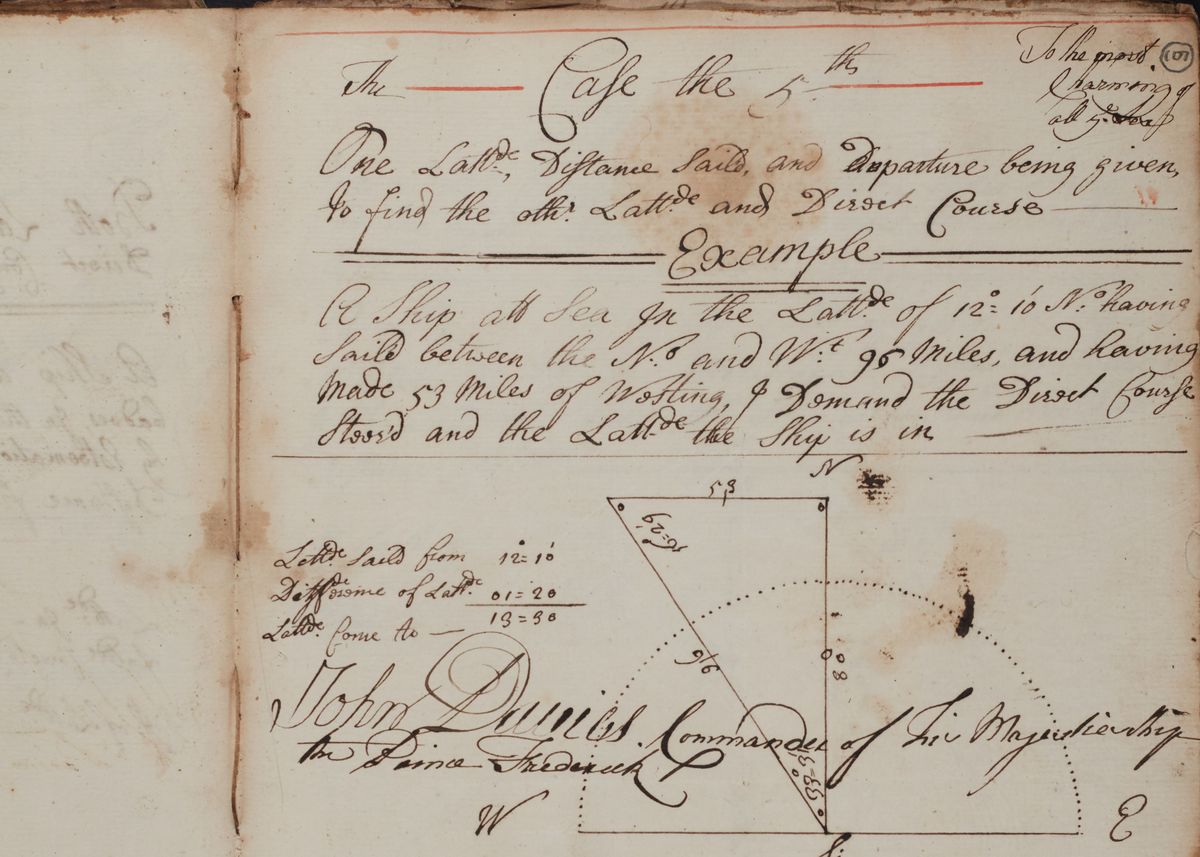 The Case the 5th
To the most
Charming of
all ye Sea
(9)
One Lattde, Distance Saild, and Departure being given,
To find the othr Lattde and Direct Course
Example
A Ship att Sea In the Lattde of 12°=10' No. having
Saild between the No. and Wt. 96 Miles, and having
Made 53 Miles of Westing, I Demand the Direct Course
Steer'd and the Lattde the Ship is in
N
53
56=29
Lattde Saild from 12°=10'
Diffderence of Lattde. 01=20
Lattde. Come to — 13=30
96
80
33=31
John Dunies Commander of his Majesties Ship
the Prince Frederick
W
E
S: